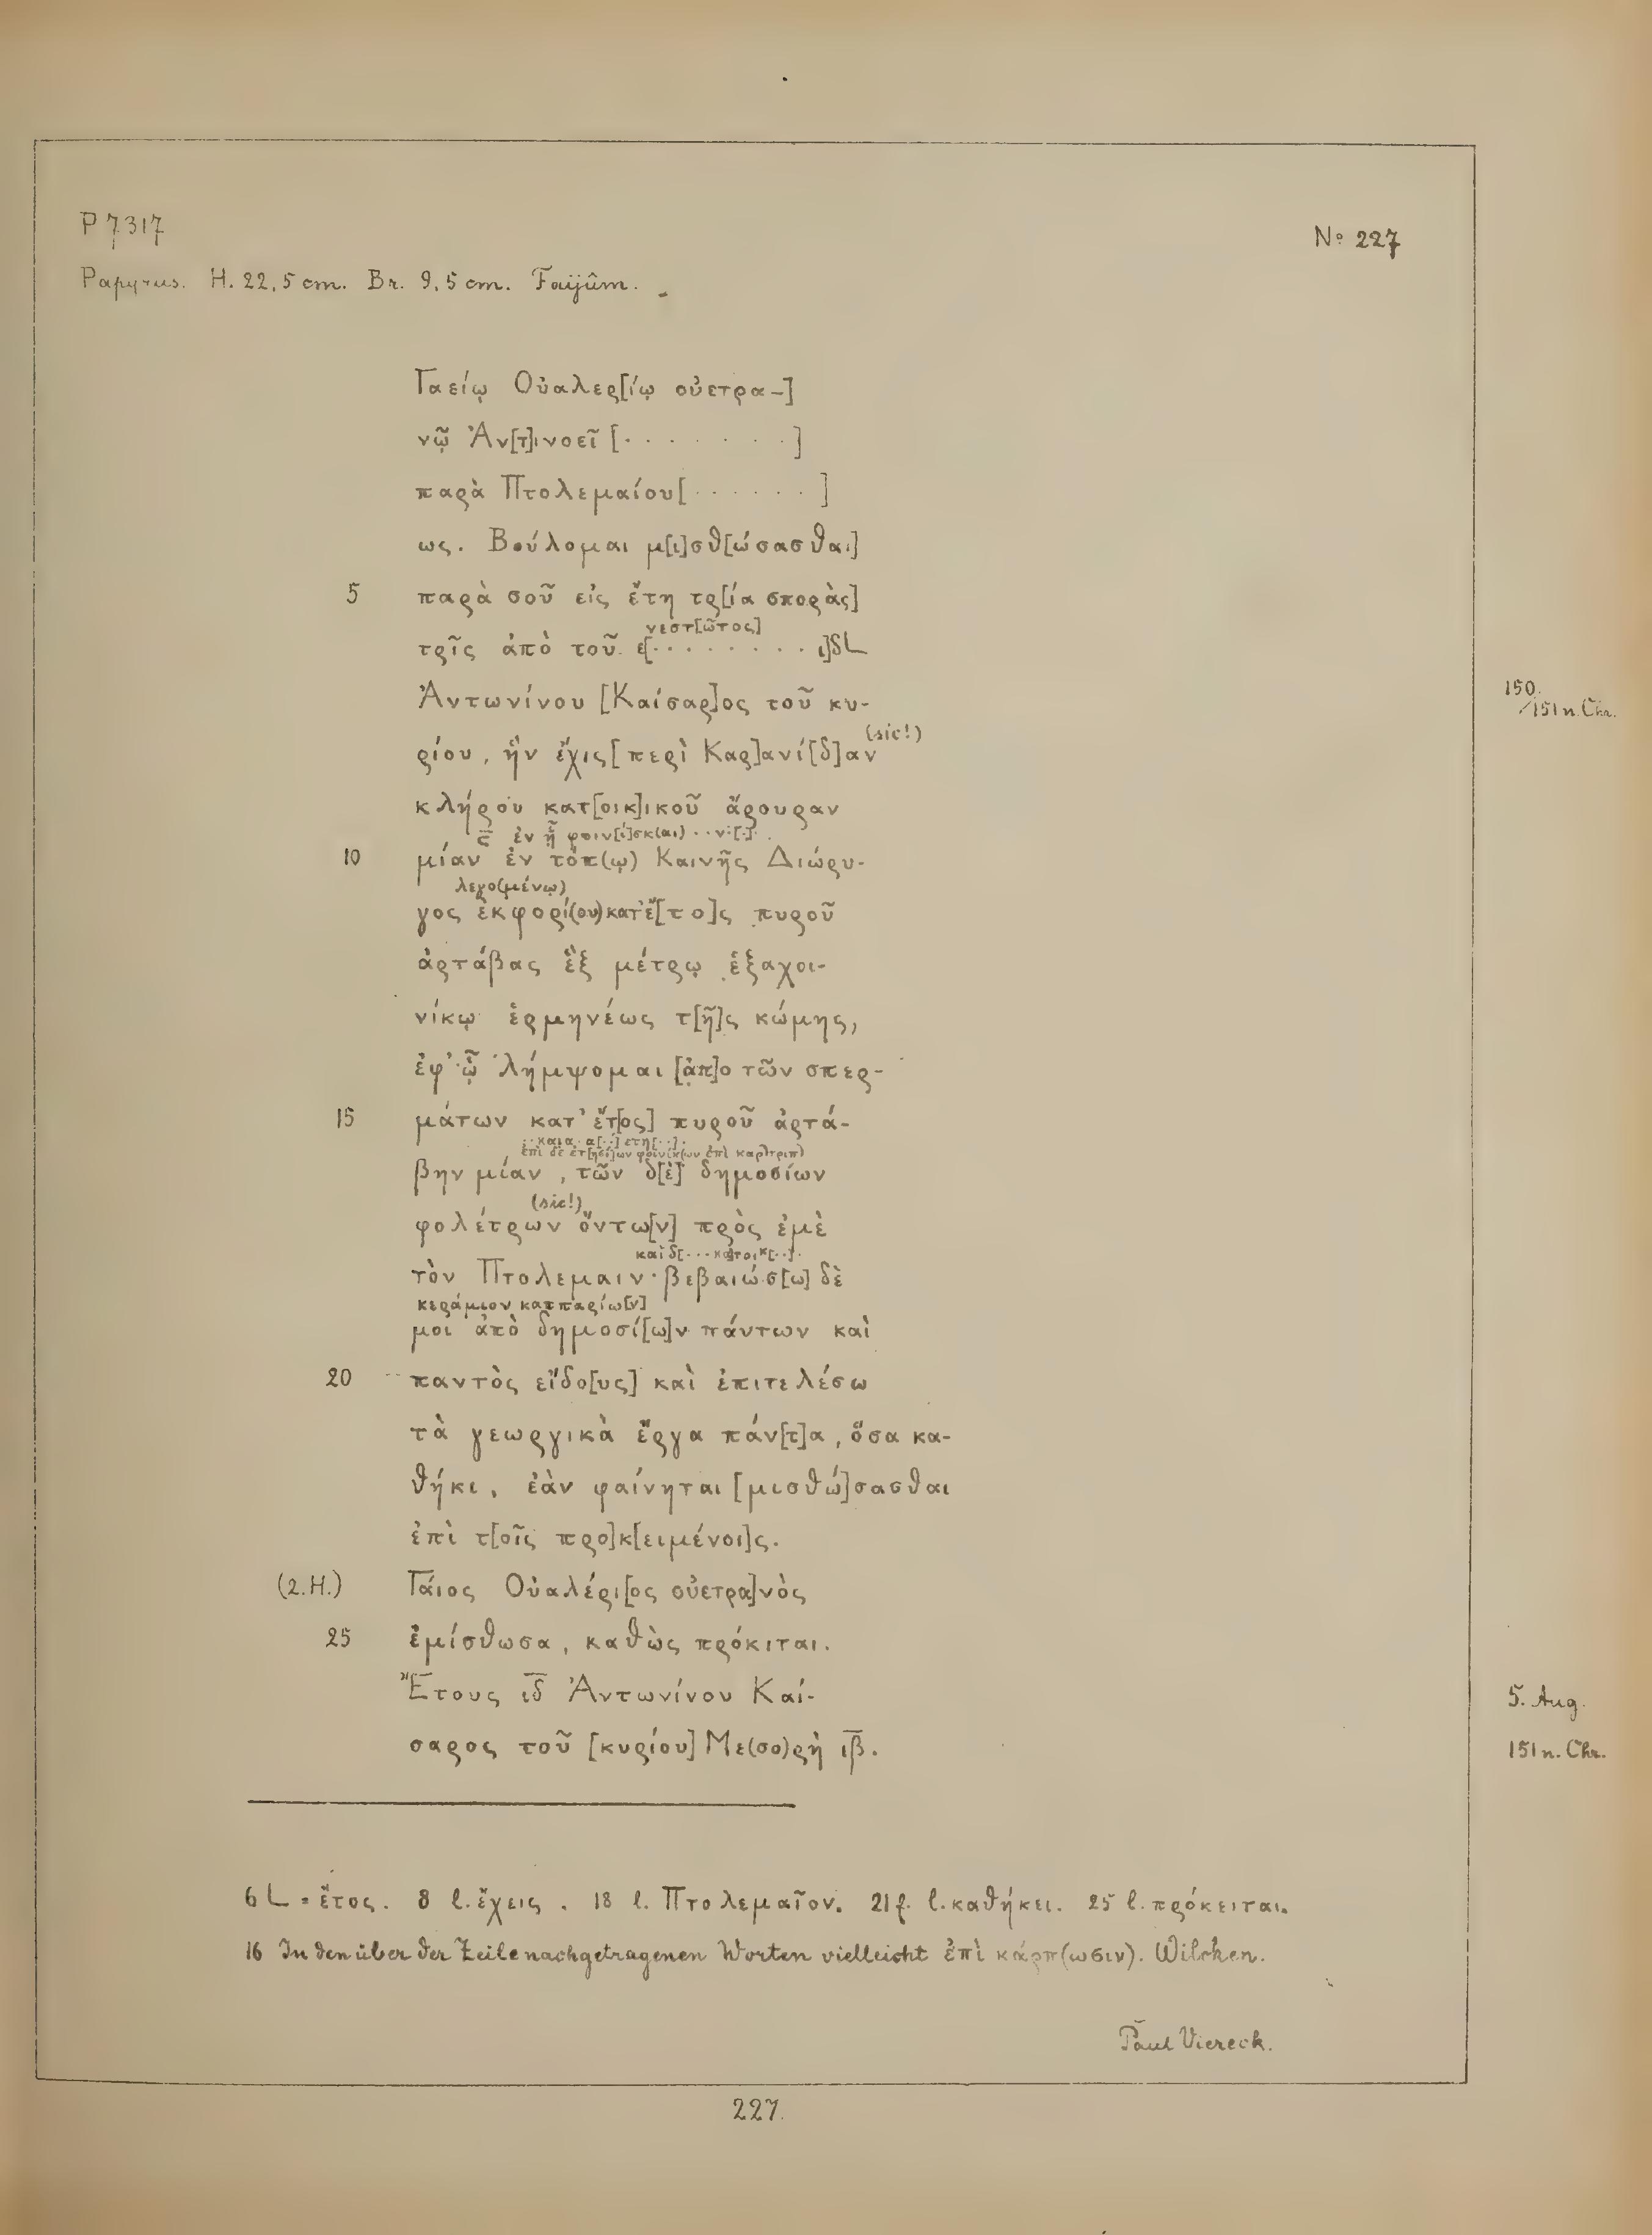 P 7317
Nº 227
Papyrus. H. 22,5 cm. Br. 9,5 cm. Faijûm.
Γαείῳ Οὐαλερ[ίῳ οὐετρα-]
νῷ Ἀν[τ]ινοεῖ [. . . . . . .]
παρὰ Πτολεμαίου[. . . . . . ]
ως. Βούλομαι μ[ι]σθ[ώσασθαι]
5 παρὰ σοῦ εἰς ἔτη τρ[ία σπορὰς]
νεστ[ῶτος]
τρῖς ἀπὸ τοῦ ε[. . . . . . . . ι]δL
Ἀντωνίνου [Καίσαρ]ος τοῦ κυ-
150/151 n. Chr.
(sic!)
ρίου, ἣν ἔχις[περὶ Καρ]ανί[δ]αν
κλήρου κατ[οικ]ικοῦ ἄρουραν
ἐν ᾗ φοιν[ί]σκ(αι) . . ν.[.] .
10 μίαν ἐν τόπ(ῳ) Καινῆς Διώρυ-
λεγο(μένῳ)
γος ἐκφορί(ου) κατ' ἔ[το]ς πυροῦ
ἀρτάβας ἓξ μέτρῳ ἑξαχοι-
νίκῳ ἑρμηνέως τ[ῆ]ς κώμης,
ἐφ' ᾧ λήμψομαι [ἀπ]ο τῶν σπερ-
15 μάτων κατ' ἔτ[ος] πυροῦ ἀρτά-
. . καια . α[. .] ετη[. .] .
ἐπὶ δὲ ἐτ[ησί]ων φοινίκ(ων ἐπὶ καρ)τριπ)
βην μίαν, τῶν δ[ὲ] δημοσίων
(sic!)
φολέτρων ὄντω[ν] πρὸς ἐμὲ
καὶ δ[. . . κα]τοικ[. .] .
τὸν Πτολεμαιν · βεβαιώσ[ω] δὲ
κεράμιον καππαρίω[ν]
μοι ἀπὸ δημοσί[ω]ν πάντων καὶ
20 παντὸς εἴδο[υς] καὶ ἐπιτελέσω
τὰ γεωργικὰ ἔργα πάν[τ]α, ὅσα κα-
θήκι, ἐὰν φαίνηται [μισθώ]σασθαι
ἐπὶ τ[οῖς προ]κ[ειμένοι]ς.
(2. H.) Γάιος Οὐαλέρι[ος οὐετρα]νὸς
25 ἐμίσθωσα, καθὼς πρόκιται.
Ἔτους ιδ̅ Ἀντωνίνου Καί-
5. Aug.
σαρος τοῦ [κυρίου] Με(σο)ρὴ ιβ̅.
151 n. Chr.
6 L = ἔτος. 8 l. ἔχεις. 18 l. Πτολεμαῖον. 21 f. l. καθήκει. 25 l. πρόκειται.
16 In den über der Zeile nachgetragenen Worten vielleicht ἐπὶ κάρπ(ωσιν). Wilcken.
Paul Viereck.
227.